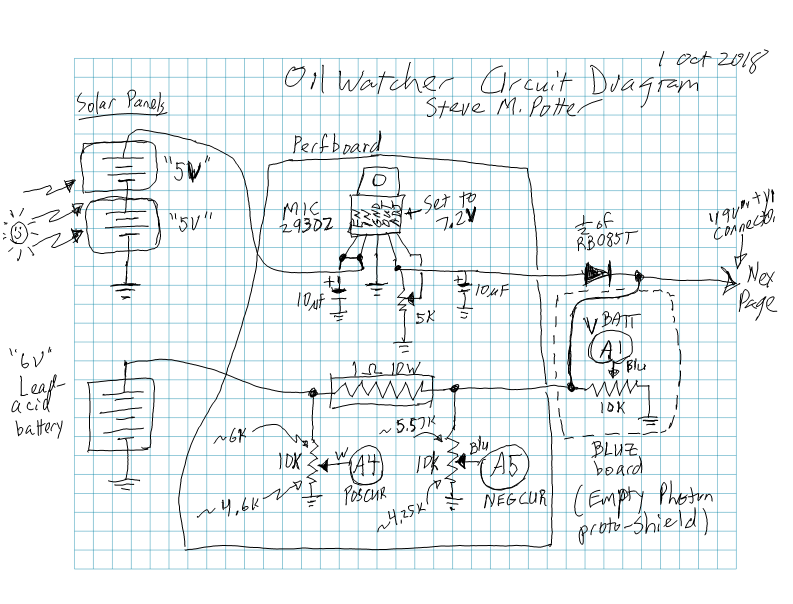 1 Oct 2018
Oil Watcher Circuit Diagram
Steve M. Potter
Solar Panels
Perfboard
"5V"
"5V"
MIC
29302
EN
IN
GND
OUT
ADJ
Set to
7.2V
1/2 of
RB085T
"9V" +
Connector
Next
Page
+
10µF
5K
+
10µF
VBATT
A1
Blu
10K
BLUZ
board
(Empty Photon
proto-shield)
"6V"
Lead-
acid
battery
1Ω 10W
~6K
10K
W
A4
POSCUR
~4.6K
~5.57K
10K
Blu
A5
NEGCUR
~4.25K